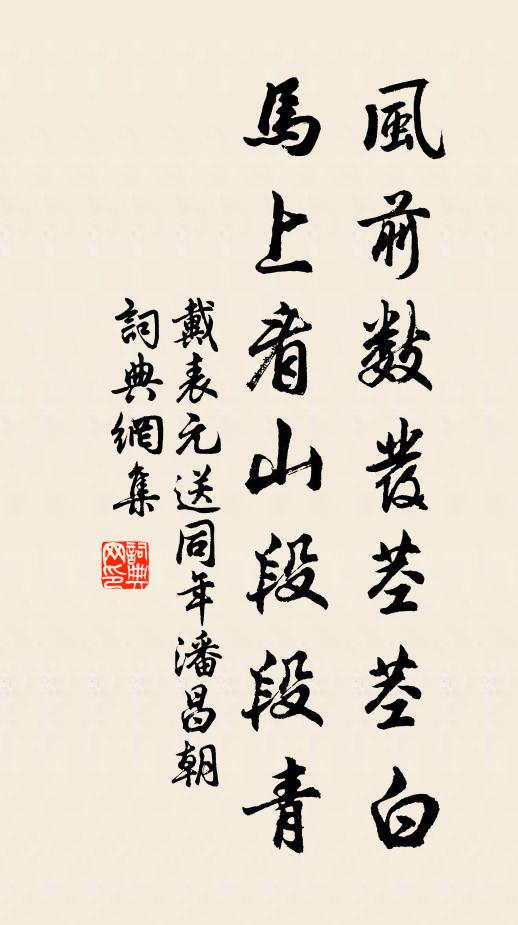 風前数发茎茎白
馬上看山段段青
戴表元送同年潘昌朝
詞典網集
詞典网印